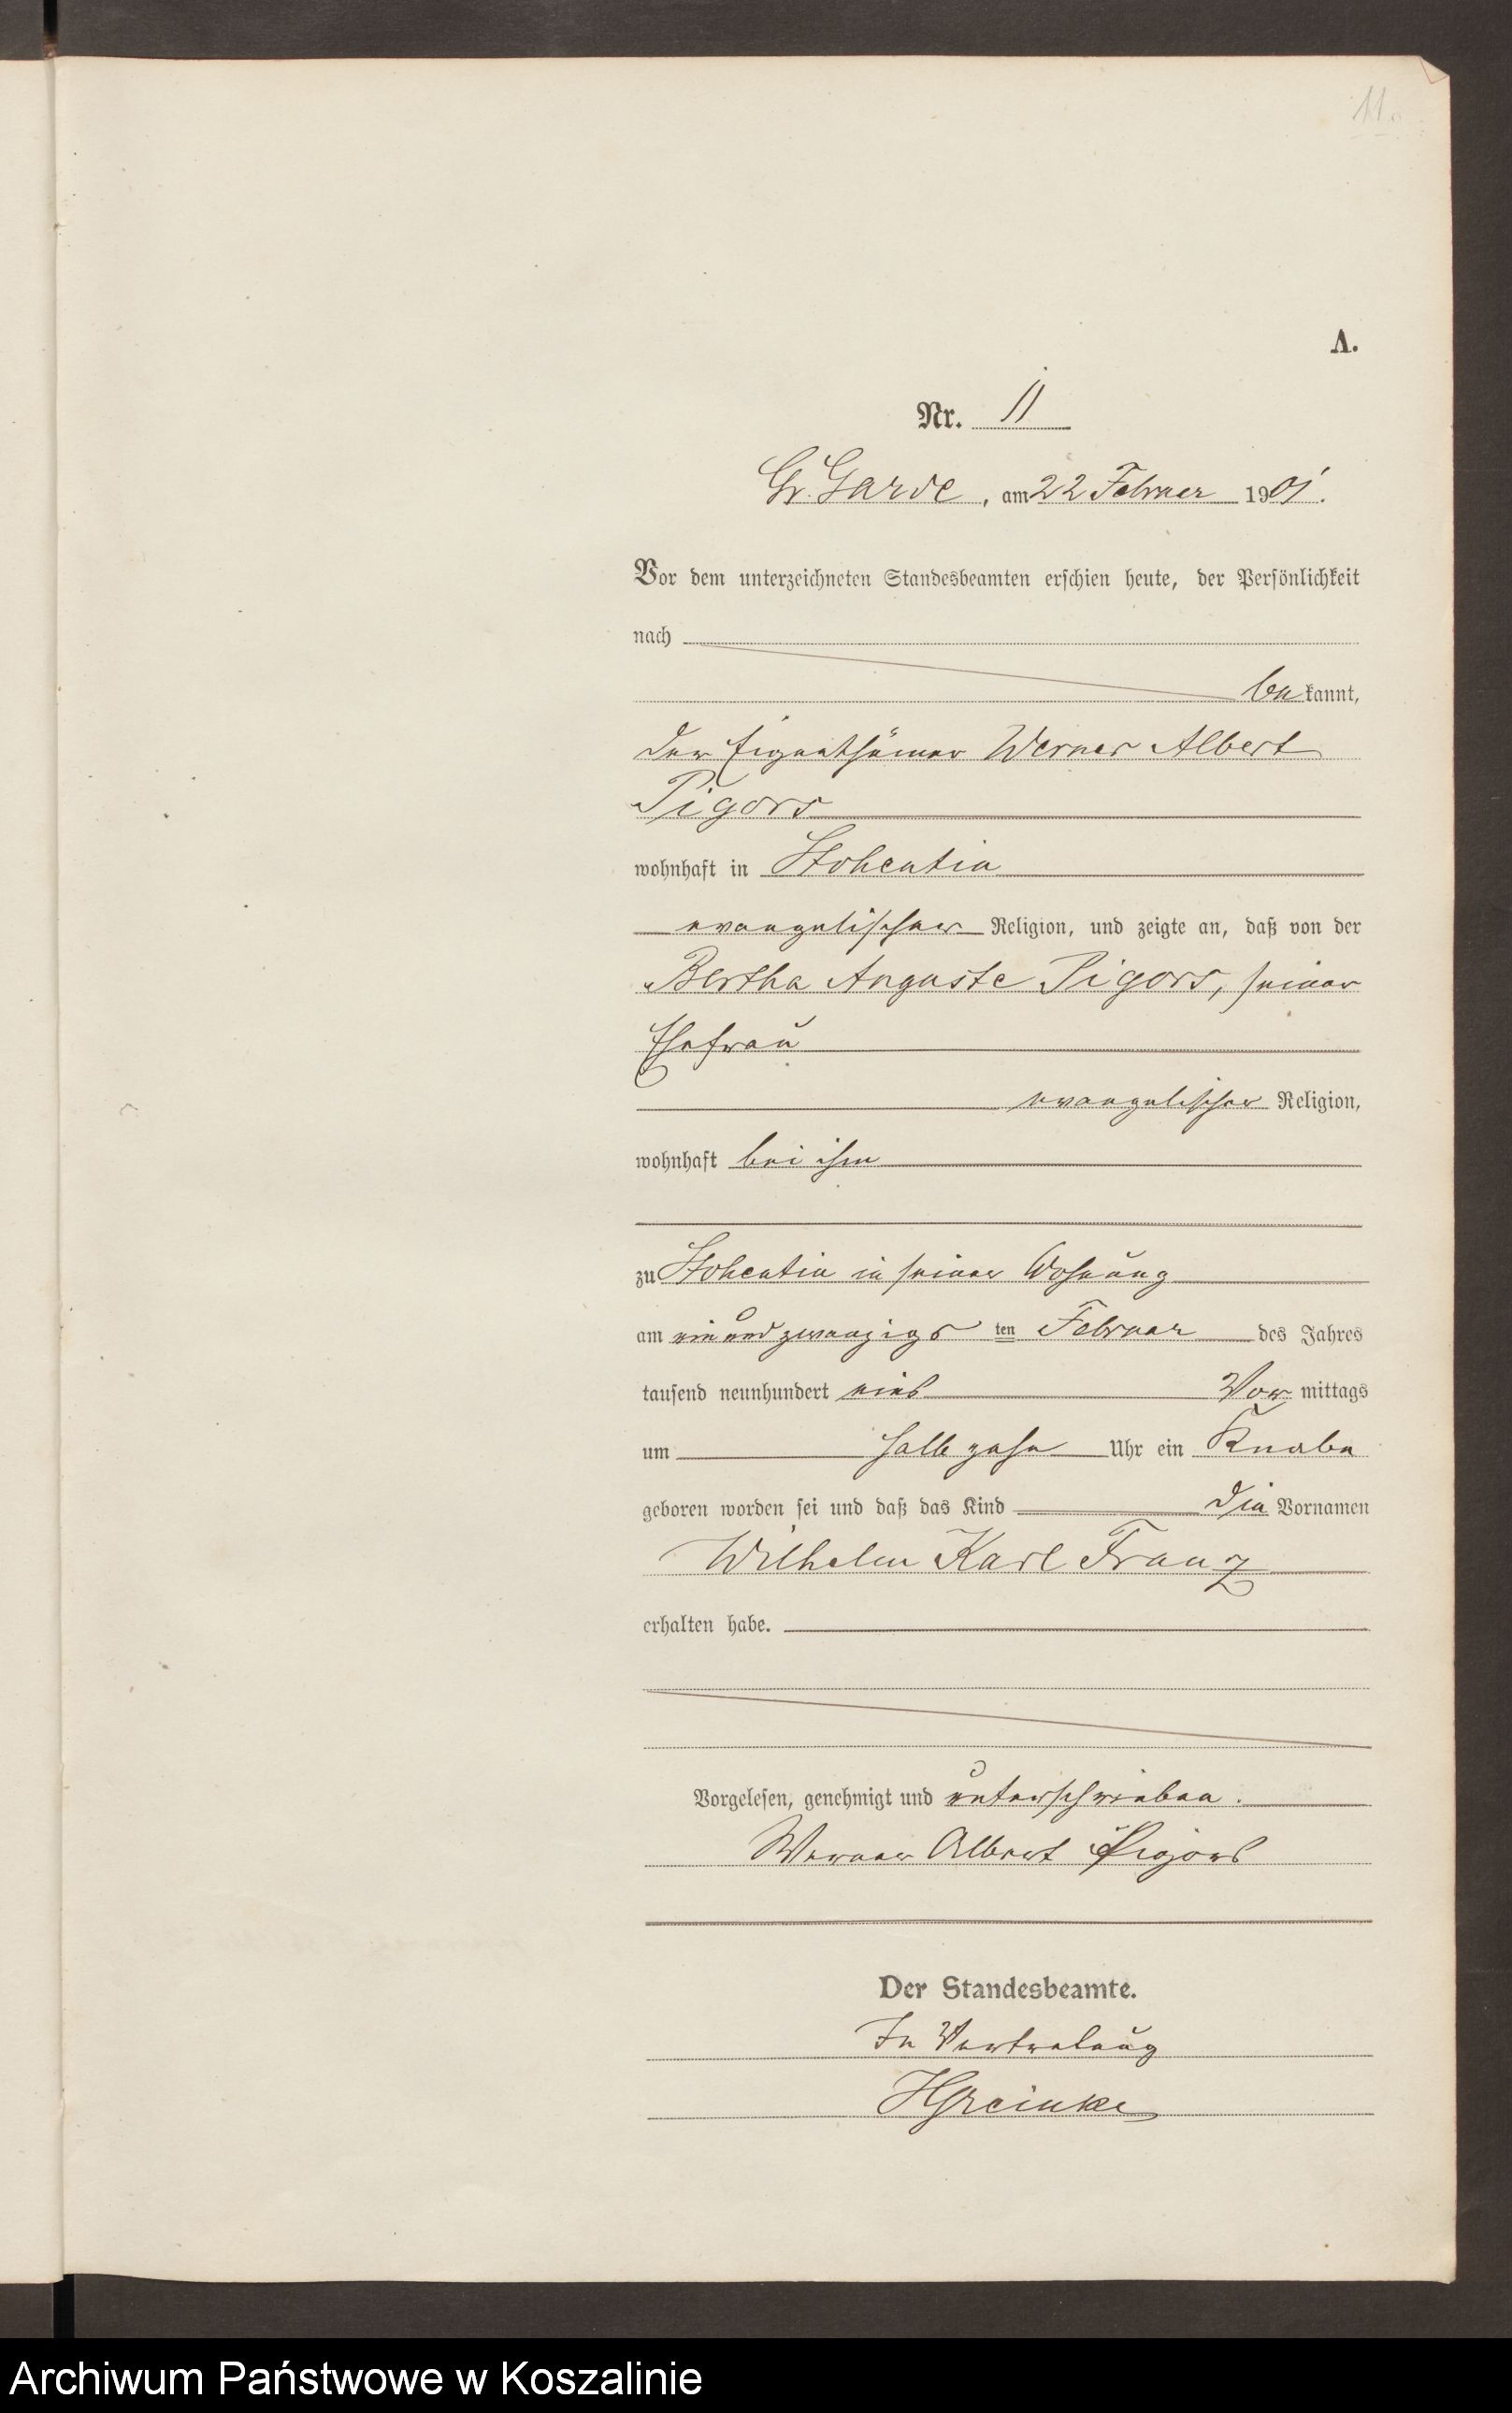 11.
A.
Nr. 11
Gr. Garde, am 22 Februar 1901.
Vor dem unterzeichneten Standesbeamten erschien heute, der Persönlichkeit
nach
bekannt,
der Eigenthümer Werner Albert
Pigors
wohnhaft in Stohentin
evangelischer Religion, und zeigte an, daß von der
Bertha Auguste Pigors, seiner
Ehefrau
evangelischer Religion,
wohnhaft bei ihm
zu Stohentin in seiner Wohnung
am einundzwanzigsten Februar des Jahres
tausend neunhundert eins Vormittags
um halb zehn Uhr ein Knabe
geboren worden sei und daß das Kind die Vornamen
Wilhelm Karl Franz
erhalten habe.
Vorgelesen, genehmigt und unterschrieben.
Werner Albert Pigors
Der Standesbeamte.
In Vertretung
HGreinke
Archiwum Państwowe w Koszalinie